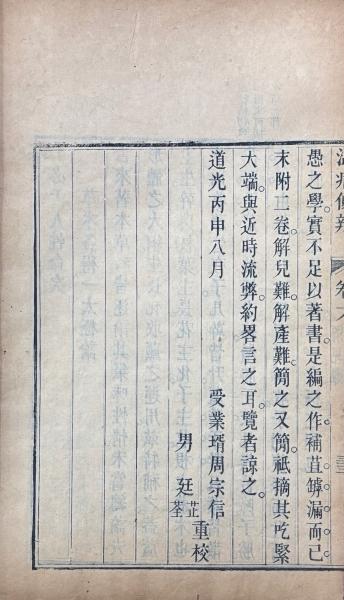 温病條辨 卷六
愚之學。實不足以著書。是編之作。補苴罅漏而已。
末附二卷。解兒難。解產難。簡之又簡。祗摘其吃緊
大端。與近時流弊。約畧言之耳。覽者諒之。
道光丙申八月 受業壻周宗信
男 廷芷荃重校